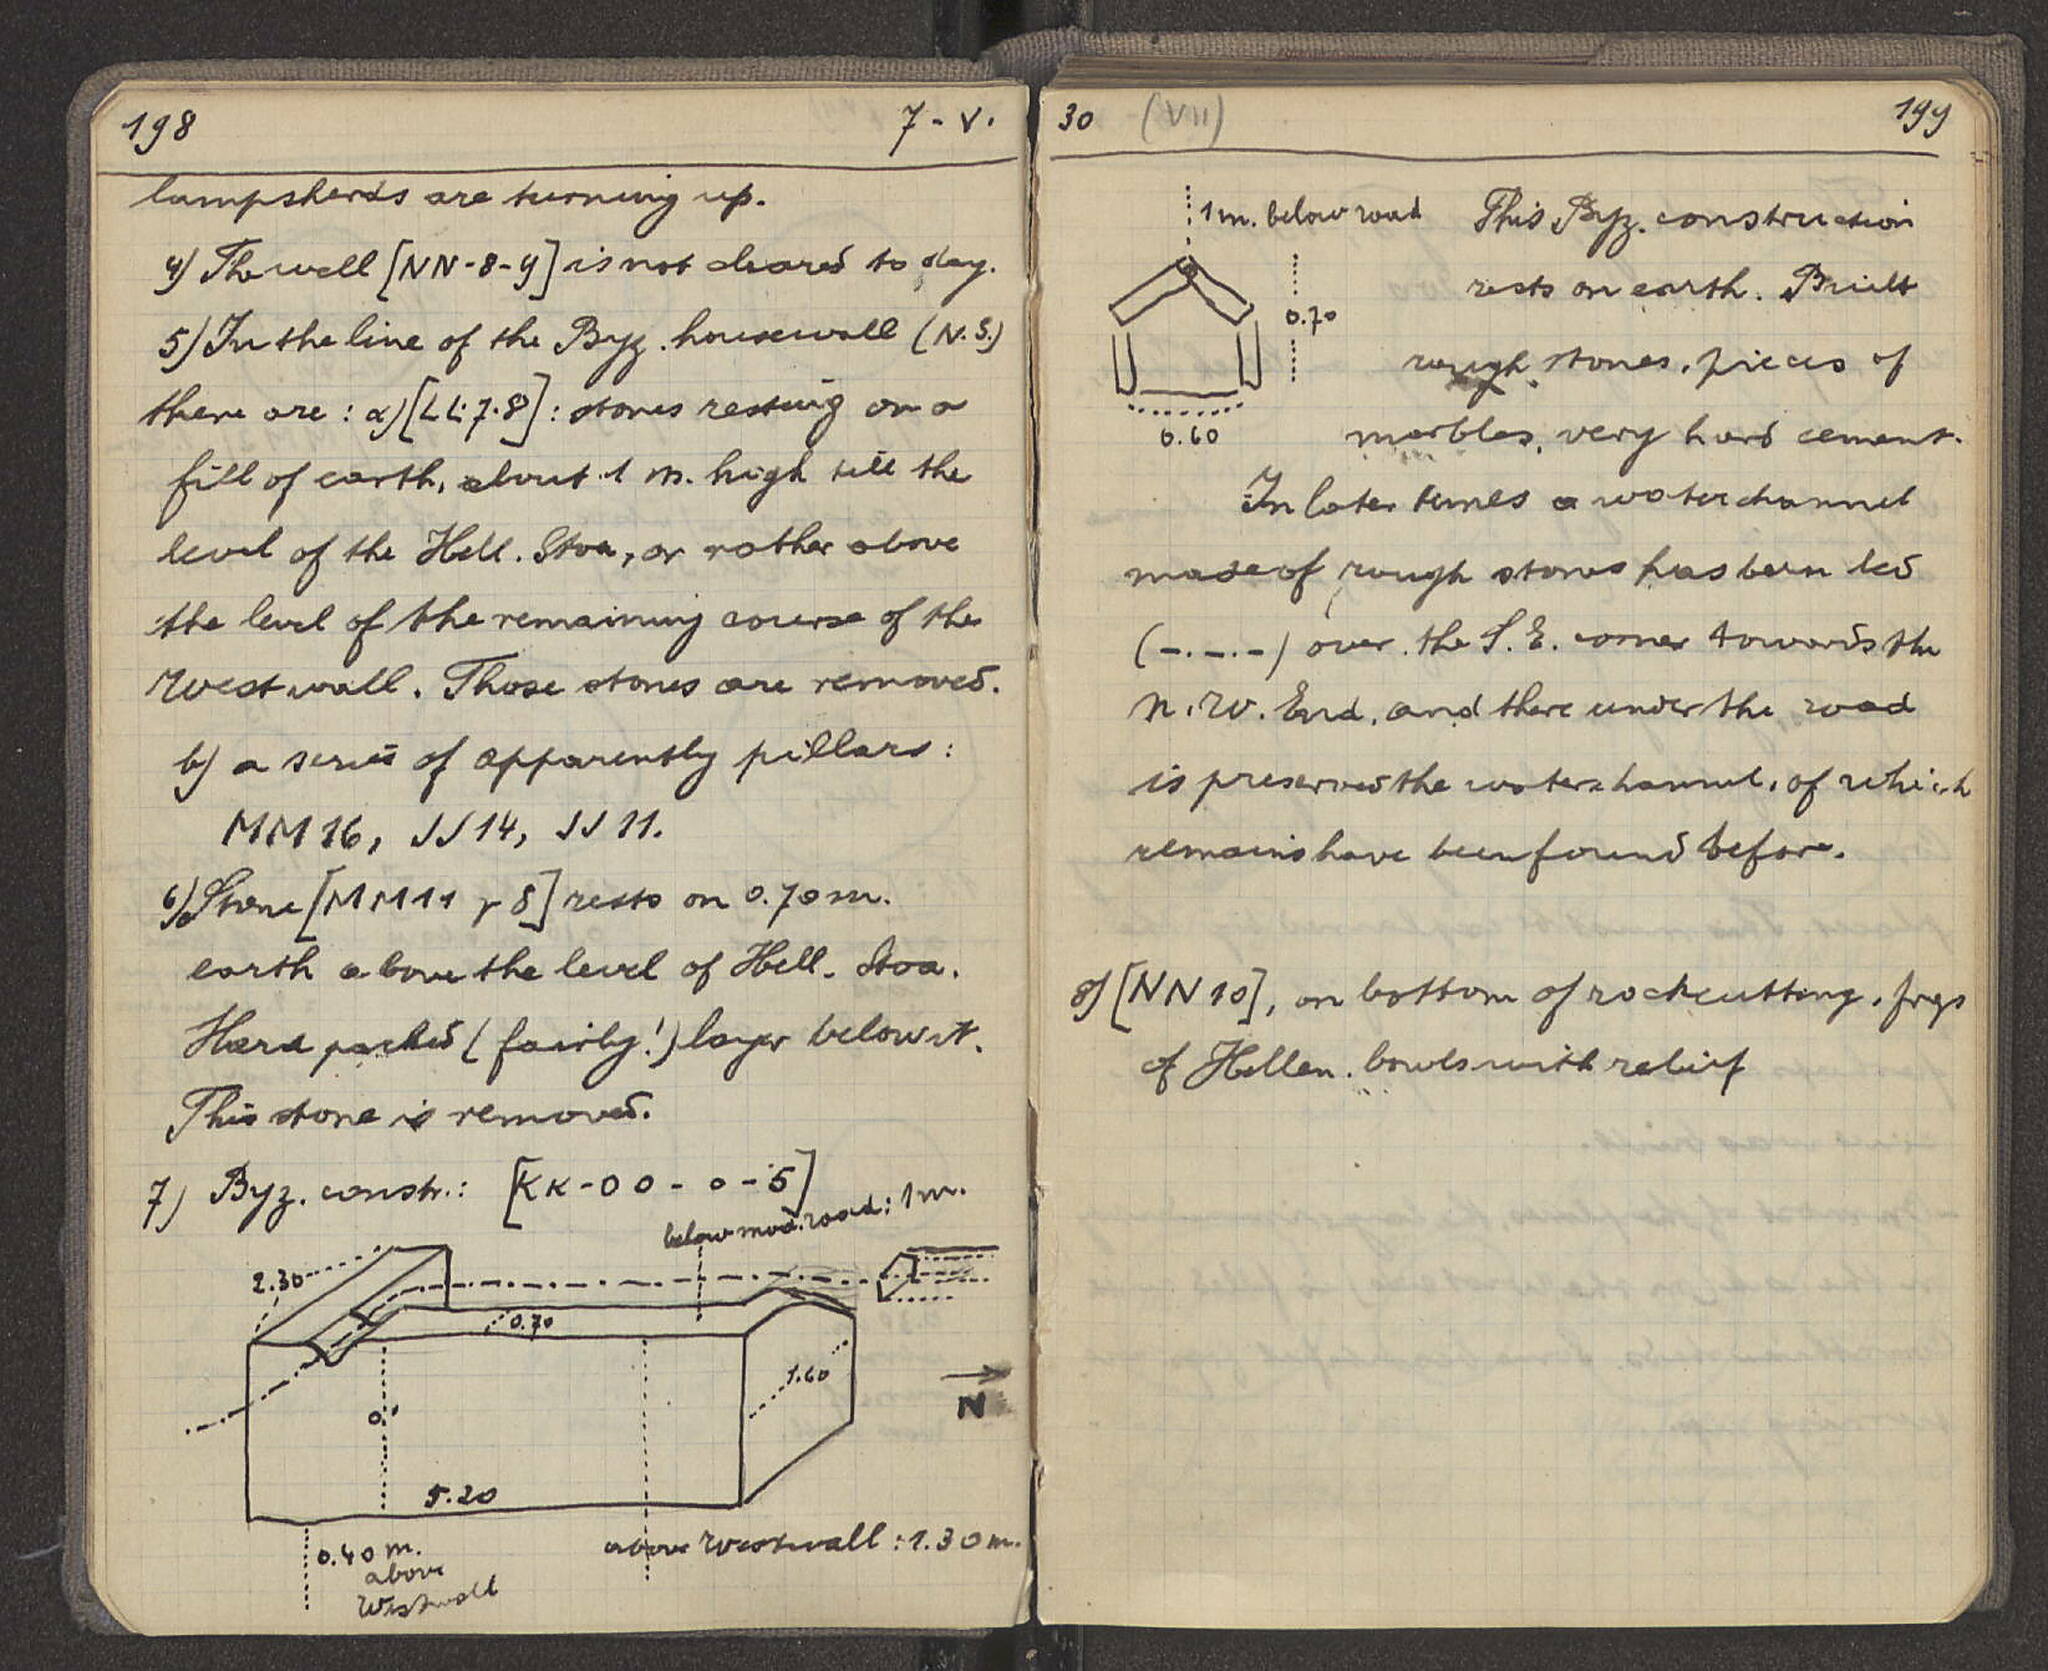 198
7 - V.
lampsherds are turning up.
4) The well [NN-8-9] is not cleared to day.
5) In the line of the Byz. housewall (N.S.)
there are: a) [LL:7-8]: stones resting on a
fill of earth, about 1 m. high till the
level of the Hell. Stoa, or rather above
the level of the remaining course of the
Westwall. Those stones are removed.
b) a series of apparently pillars:
MM16, JJ14, JJ11.
6) Stone [MM11 γ δ] rests on 0.70 m.
earth above the level of Hell. Stoa.
Hard packed (fairly!) layer below it.
This stone is removed.
7) Byz. constr.: [KK-OO - 0-5]
below mod. road: 1 m.
2.30
0.70
1.60
N
5.20
0.40 m.
above
Westwall
above Westwall: 1.30 m.
30 (VII)
199
1 m. below road
0.70
0.60
This Byz. construction
rests on earth. Built
rough stones, pieces of
marbles, very hard cement.
In later times a waterchannel
made of rough stones has been led
(-.-.-) over the S.E. corner towards the
N.W. End, and there under the road
is preserved the waterchannel, of which
remains have been found before.
8) [NN10], on bottom of rockcutting, frgs
of Hellen. bowls with relief